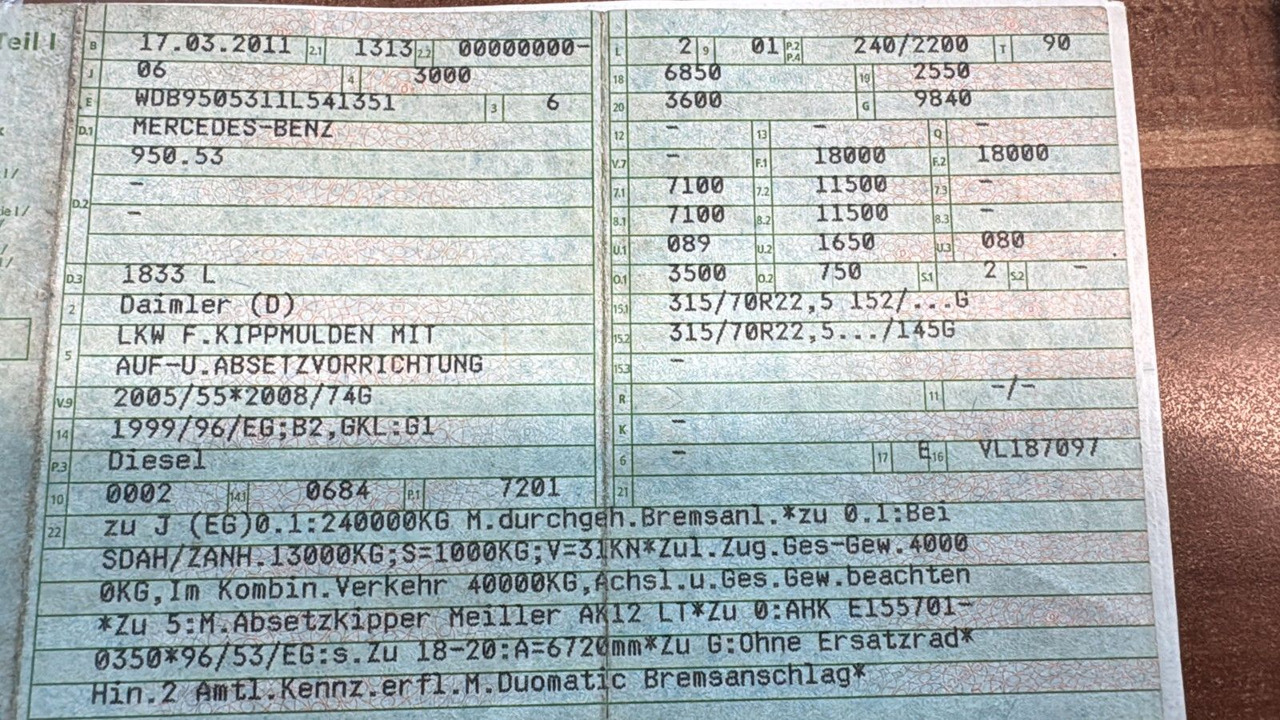 Teil I
B 17.03.2011 2.1 1313 2.2 00000000-
J 06 4 3000
E WDB9505311L541351 3 6
D.1 MERCEDES-BENZ
950.53
-
D.2 -
D.3 1833 L
2 Daimler (D)
LKW F.KIPPMULDEN MIT
5 AUF-U.ABSETZVORRICHTUNG
V.9 2005/55*2008/74G
14 1999/96/EG;B2,GKL:G1
P.3 Diesel
10 0002 14.1 0684 P.1 7201
L 2 9 01 P.2 P.4 240/2200 T 90
18 6850 19 2550
20 3600 G 9840
12 - 13 - Q -
V.7 - F.1 18000 F.2 18000
7.1 7100 7.2 11500 7.3 -
8.1 7100 8.2 11500 8.3 -
U.1 089 U.2 1650 U.3 080
O.1 3500 O.2 750 S.1 2 S.2 -
15.1 315/70R22,5 152/...G
15.2 315/70R22,5.../145G
15.3 -
R 11 -/-
K -
6 - 17 E 16 VL187097
21
22 zu J (EG)0.1:240000KG M.durchgeh.Bremsanl.*zu 0.1:Bei
SDAH/ZANH.13000KG;S=1000KG;V=31KN*Zul.Zug.Ges-Gew.4000
0KG,Im Kombin.Verkehr 40000KG,Achsl.u.Ges.Gew.beachten
*Zu 5:M.Absetzkipper Meiller AK12 LT*Zu 0:AHK E155701-
0350*96/53/EG:s.Zu 18-20:A=6720mm*Zu G:Ohne Ersatzrad*
Hin.2 Amtl.Kennz.erfl.M.Duomatic Bremsanschlag*